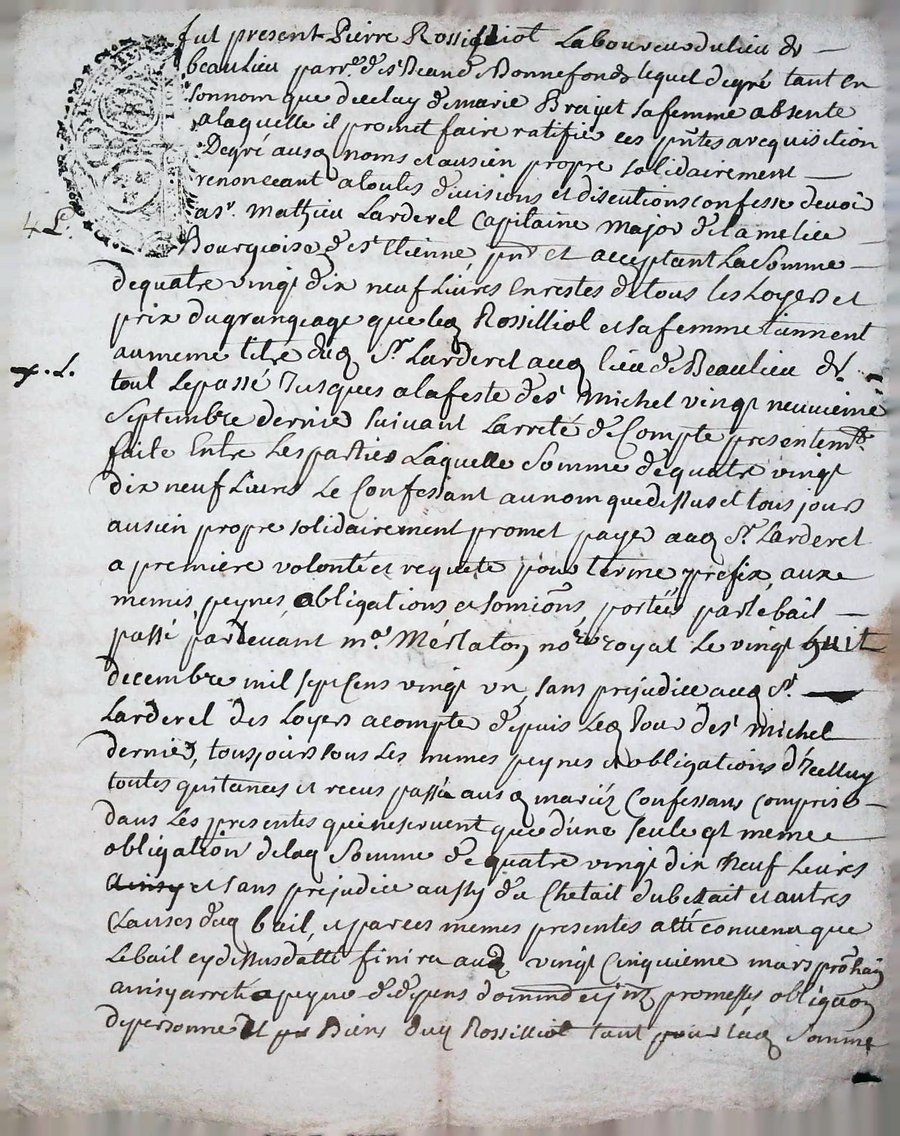 fut present Pierre Rossilliol Laboureur du lieu de
beaulieu parr.e de st Jean de Bonnefonds lequel de gré tant en
son nom que de celuy de marie Brajet sa femme absente
a laquelle il promet faire ratiffier ces pñtes avec quisition
De gré ausq noms et au sien propre solidairement
renonceant a toutes divisions et discutions confesse devoir
4 L.
a sr. Mathieu Larderel Capitaine Major de la melice
Bourgeoise de st Etienne pnt et acceptant La Somme
de quatre vingt dix neuf Livres en restes de tous les Loyers et
prix du grangeage que leq Rossilliol et sa femme tiennent
au meme titre duq Sr. Larderel auq lieu de Beaulieu de
x. L.
tout Le passé Jusques a la feste de st Michel vingt neuvieme
Septembre dernier suivant Larreté de Compte presentemt
faite Entre Les parties Laquelle Somme de quatre vingt
dix neuf Livres Le Confessant au nom que dessus et tousjours
au sien propre solidairement promet payer auq Sr. Larderel
a premiere volonté et requete pour terme prefix, aux
memes peynes, obligations et somiõns portées par le bail
passé pardevant me. Merlaton nore royal Le vingt huit
decembre mil sept Cens vingt un, sans prejudice auq Sr.
Larderel des Loyers a compte depuis Leq Jour de st michel
dernier, tousjours sous Les memes peynes et obligations d'Icelluy
toutes quitances et recus passés ausq mariéz Confessans compris
dans Les presentes qui ne servent que d'une seule et meme
obligation de laq Somme de quatre vingt dix neuf Livres
ainsy et sans prejudice aussy du Chetail du bettait et autres
Clauses duq bail, et par ces memes presentes a été convenu que
Le bail cy dessus datté finira auq vingt Cinquieme mars prõhain
ainsy arreté a peyne de depens dom et promesses obligaõn
de personne et Biens duq Rossilliol tant pour laq Somme